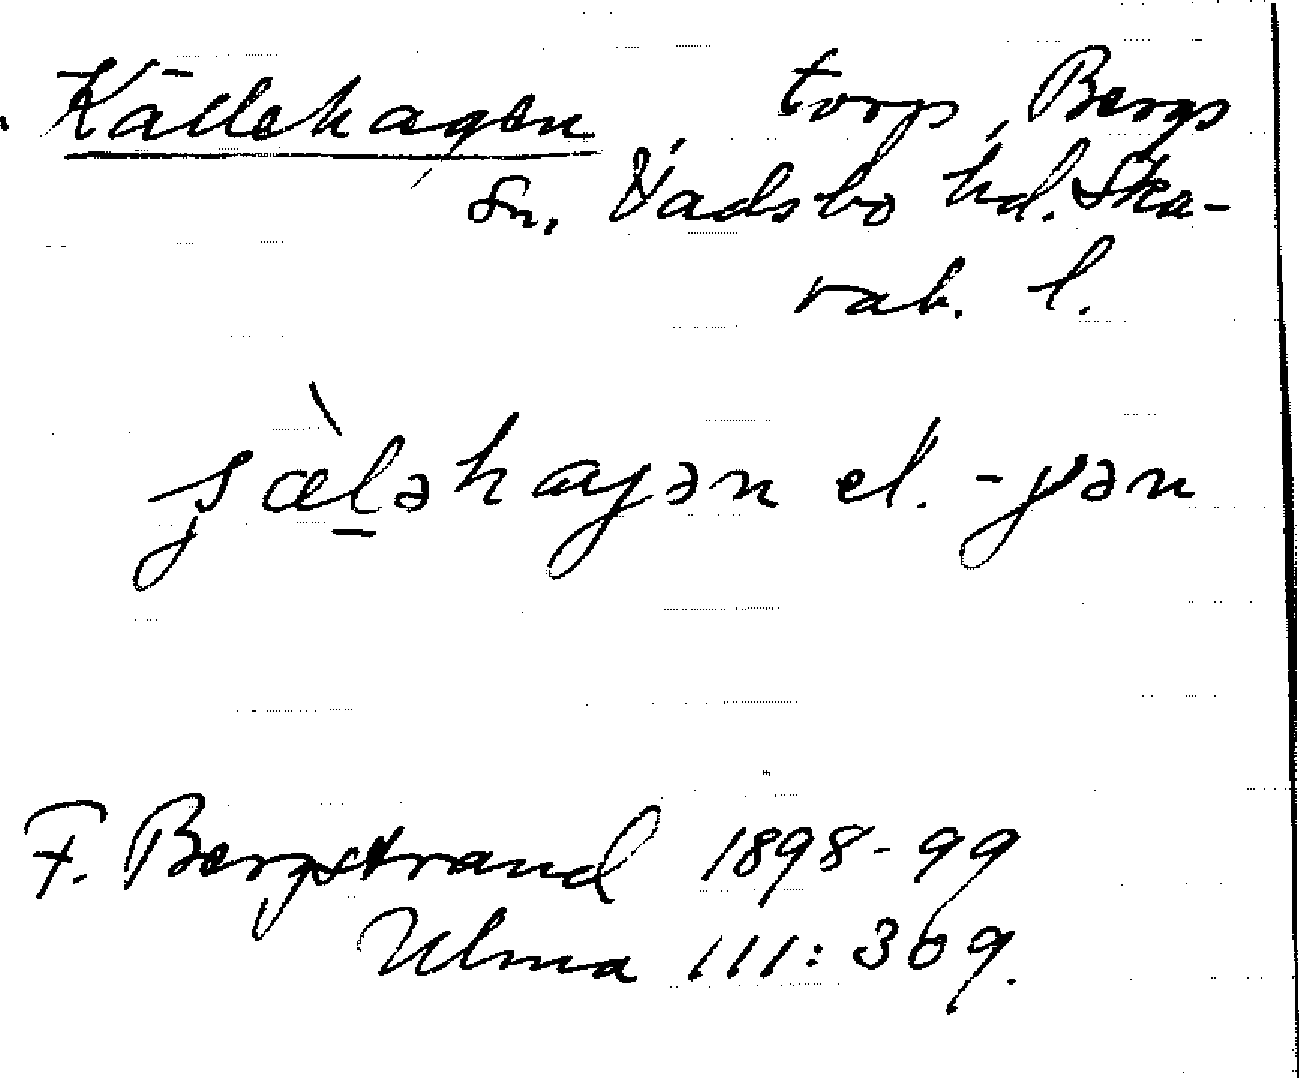 Källehagen, torp, Bergs
sn, Vadsbo hd. Ska-
rab. l.
ʂæ̀ḻəhaɣən el. -ɣən
F. Bergstrand 1898-99
Ulma 111:369.